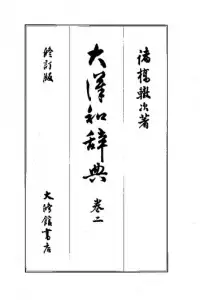 諸橋轍次著
大漢和辞典
卷二
修訂版
大修館書店